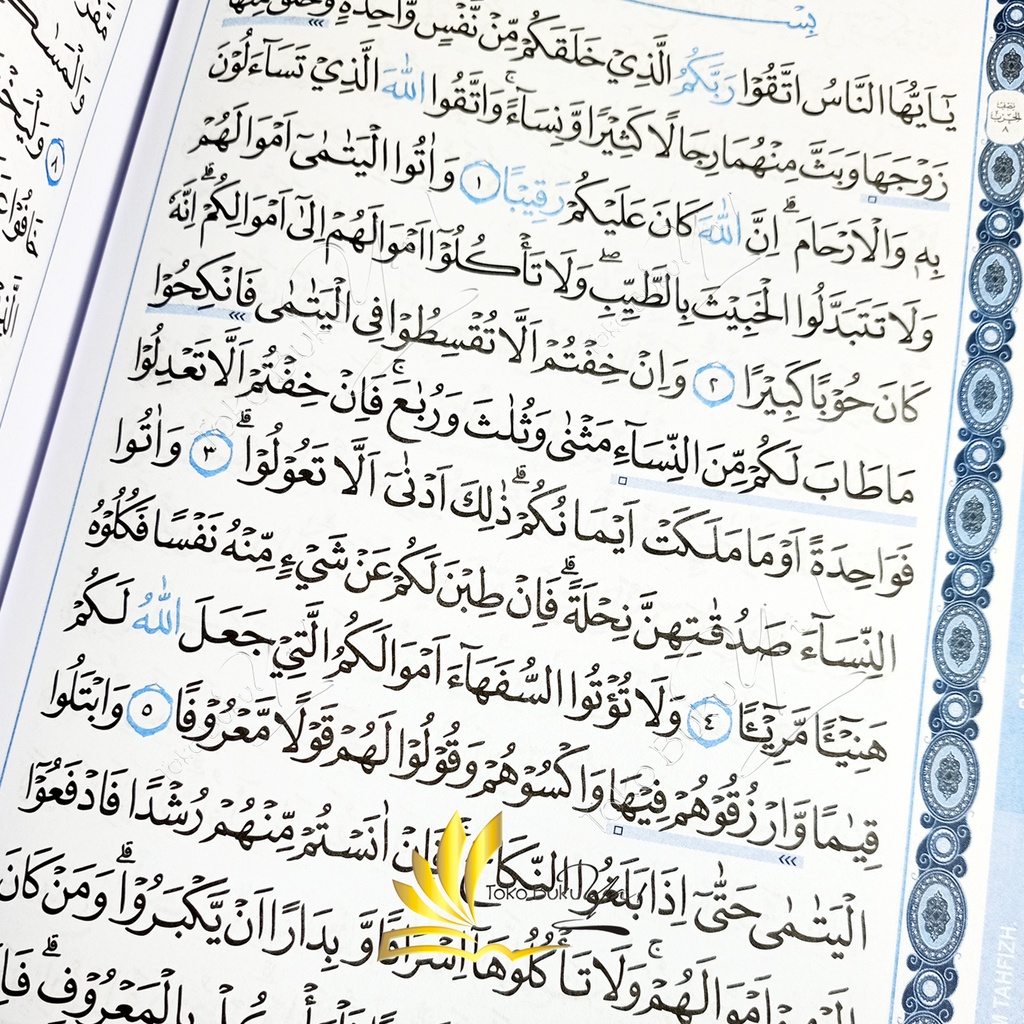 بِسْـ
يٰٓاَيُّهَا النَّاسُ اتَّقُوْا رَبَّكُمُ الَّذِيْ خَلَقَكُمْ مِّنْ نَّفْسٍ وَّاحِدَةٍ وَّخَلَقَ مِنْهَا
زَوْجَهَا وَبَثَّ مِنْهُمَا رِجَالًا كَثِيْرًا وَّنِسَاۤءً ۚ وَاتَّقُوا اللّٰهَ الَّذِيْ تَسَاۤءَلُوْنَ
بِهٖ وَالْاَرْحَامَ ۗ اِنَّ اللّٰهَ كَانَ عَلَيْكُمْ رَقِيْبًا ١ وَاٰتُوا الْيَتٰمٰىٓ اَمْوَالَهُمْ
وَلَا تَتَبَدَّلُوا الْخَبِيْثَ بِالطَّيِّبِ ۖ وَلَا تَأْكُلُوْٓا اَمْوَالَهُمْ اِلٰٓى اَمْوَالِكُمْ ۗ اِنَّهٗ
كَانَ حُوْبًا كَبِيْرًا ٢ وَاِنْ خِفْتُمْ اَلَّا تُقْسِطُوْا فِى الْيَتٰمٰى فَانْكِحُوْا
مَا طَابَ لَكُمْ مِّنَ النِّسَاۤءِ مَثْنٰى وَثُلٰثَ وَرُبٰعَ ۚ فَاِنْ خِفْتُمْ اَلَّا تَعْدِلُوْا
فَوَاحِدَةً اَوْ مَا مَلَكَتْ اَيْمَانُكُمْ ۗ ذٰلِكَ اَدْنٰىٓ اَلَّا تَعُوْلُوْا ۗ ٣ وَاٰتُوا
النِّسَاۤءَ صَدُقٰتِهِنَّ نِحْلَةً ۗ فَاِنْ طِبْنَ لَكُمْ عَنْ شَيْءٍ مِّنْهُ نَفْسًا فَكُلُوْهُ
هَنِيْۤـًٔا مَّرِيْۤـًٔا ٤ وَلَا تُؤْتُوا السُّفَهَاۤءَ اَمْوَالَكُمُ الَّتِيْ جَعَلَ اللّٰهُ لَكُمْ
قِيٰمًا وَّارْزُقُوْهُمْ فِيْهَا وَاكْسُوْهُمْ وَقُوْلُوْا لَهُمْ قَوْلًا مَّعْرُوْفًا ٥ وَابْتَلُوا
الْيَتٰمٰى حَتّٰىٓ اِذَا بَلَغُوا النِّكَاحَ فَاِنْ اٰنَسْتُمْ مِّنْهُمْ رُشْدًا فَادْفَعُوْٓا
اِلَيْهِمْ اَمْوَالَهُمْ وَلَا تَأْكُلُوْهَآ اِسْرَافًا وَّبِدَارًا اَنْ يَّكْبَرُوْا ۗ وَمَنْ كَانَ
بِالْمَعْرُوْفِ ۗ
TAHFIZH
Toko Buku